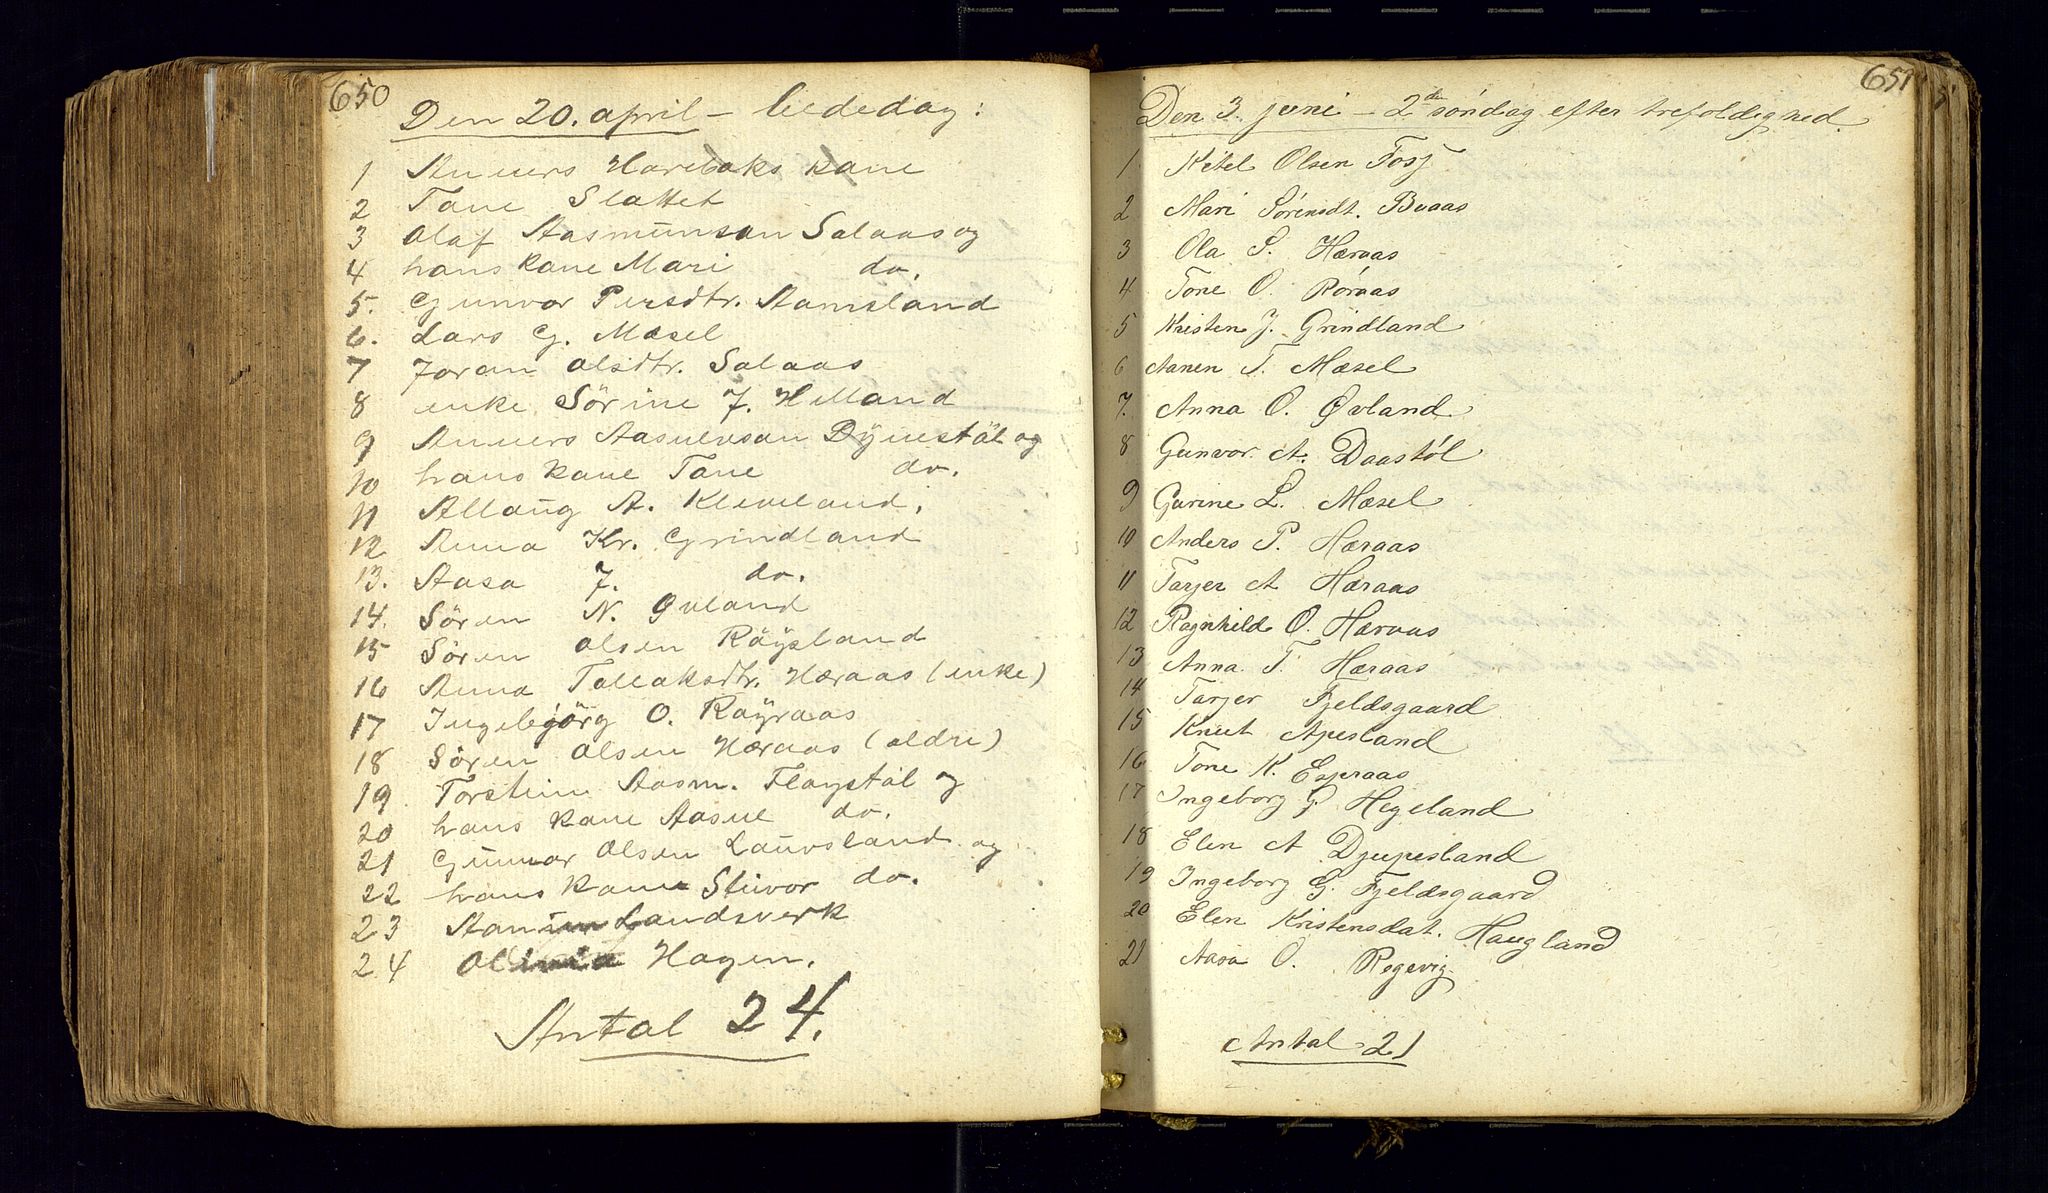 650
Den 20. april - bededag:
1 Anners Harebaks kane
2 Tane Slattet
3 Olaf Aasmunsan Salaas og
4 hans kane Mari do.
5. Gunvor Persdtr. Aamsland
6. Lars G. Mæsel
7 Joran Olsdtr. Salaas
8 enke Sörine J. Helland
9 Anners Aasuldsan Dÿnestöl og
10 hans kane Tane do.
11 Allaug A. Kleveland.
12 Anna Kr. Grindland
13. Aasa J. do.
14. Sören N. Øvland
15 Sören Olsen Röÿsland
16 Anna Tallaksdtr. Hæraas (enke)
17 Ingebjörg O. Röÿraas
18 Sören Olsen Hæraas (aldre)
19 Torstein Aasm. Fløystøl og
20 hans kane Aasne do.
21 Gunnar Olsen Lauvsland og
22 hans kane Stivor do.
23 Landsverk
24 Hagen.
Antal 24.
651
Den 3. juni - 2den søndag efter trefoldighed.
1. Kitel Olsen Fosj
2 Mari Sørensdt. Buaas
3 Ola S. Hæraas
4 Tone O. Röraas
5 Kristen J. Grindland
6 Aanen T. Mæsel
7. Anna O. Øvland
8 Gunvor A. Daastöl
9 Gurine L. Mæsel
10 Anders P. Hæraas
11 Tarjer A Hæraas
12 Ragnhild O. Hæraas
13 Anna T. Hæraas
14 Tarjer Fjeldsgaard
15 Knut Apesland
16 Tone K. Espraas
17 Ingeborg G. Hegeland
18 Elen A Djupesland
19 Ingeborg G. Fjeldsgaard
20 Elen Kristensdat. Haugland
21 Aasa O. Rogevig
Antal 21